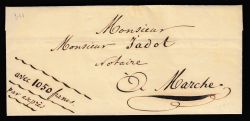 Monsieur
Monsieur Jadot
Notaire
à Marche
avec 1050 francs
par exprès